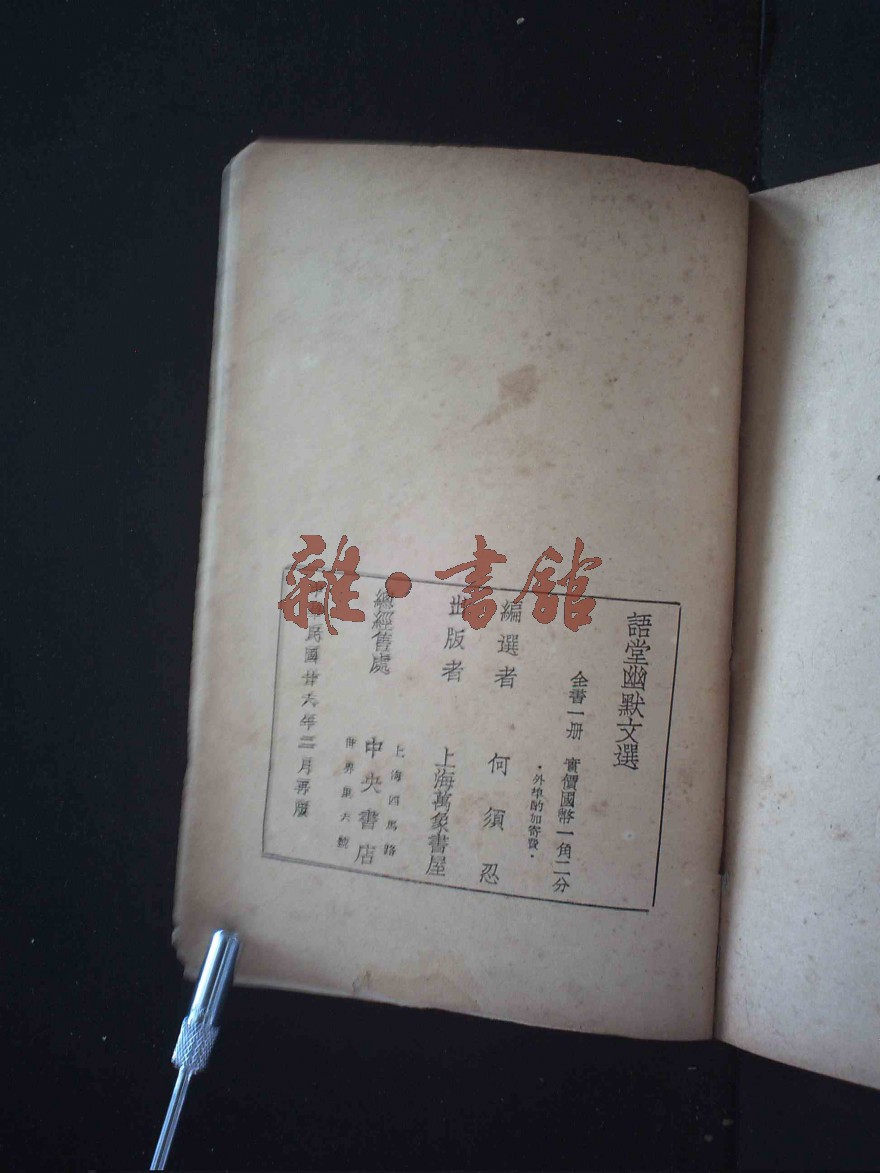 語堂幽默文選
全書一册 實價國幣一角二分
•外埠酌加寄費•
編選者 何須忍
出版者 上海萬象書屋
總經售處 中央書店
上海四馬路
世界里
中華民國廿六年三月再版
雜•書館